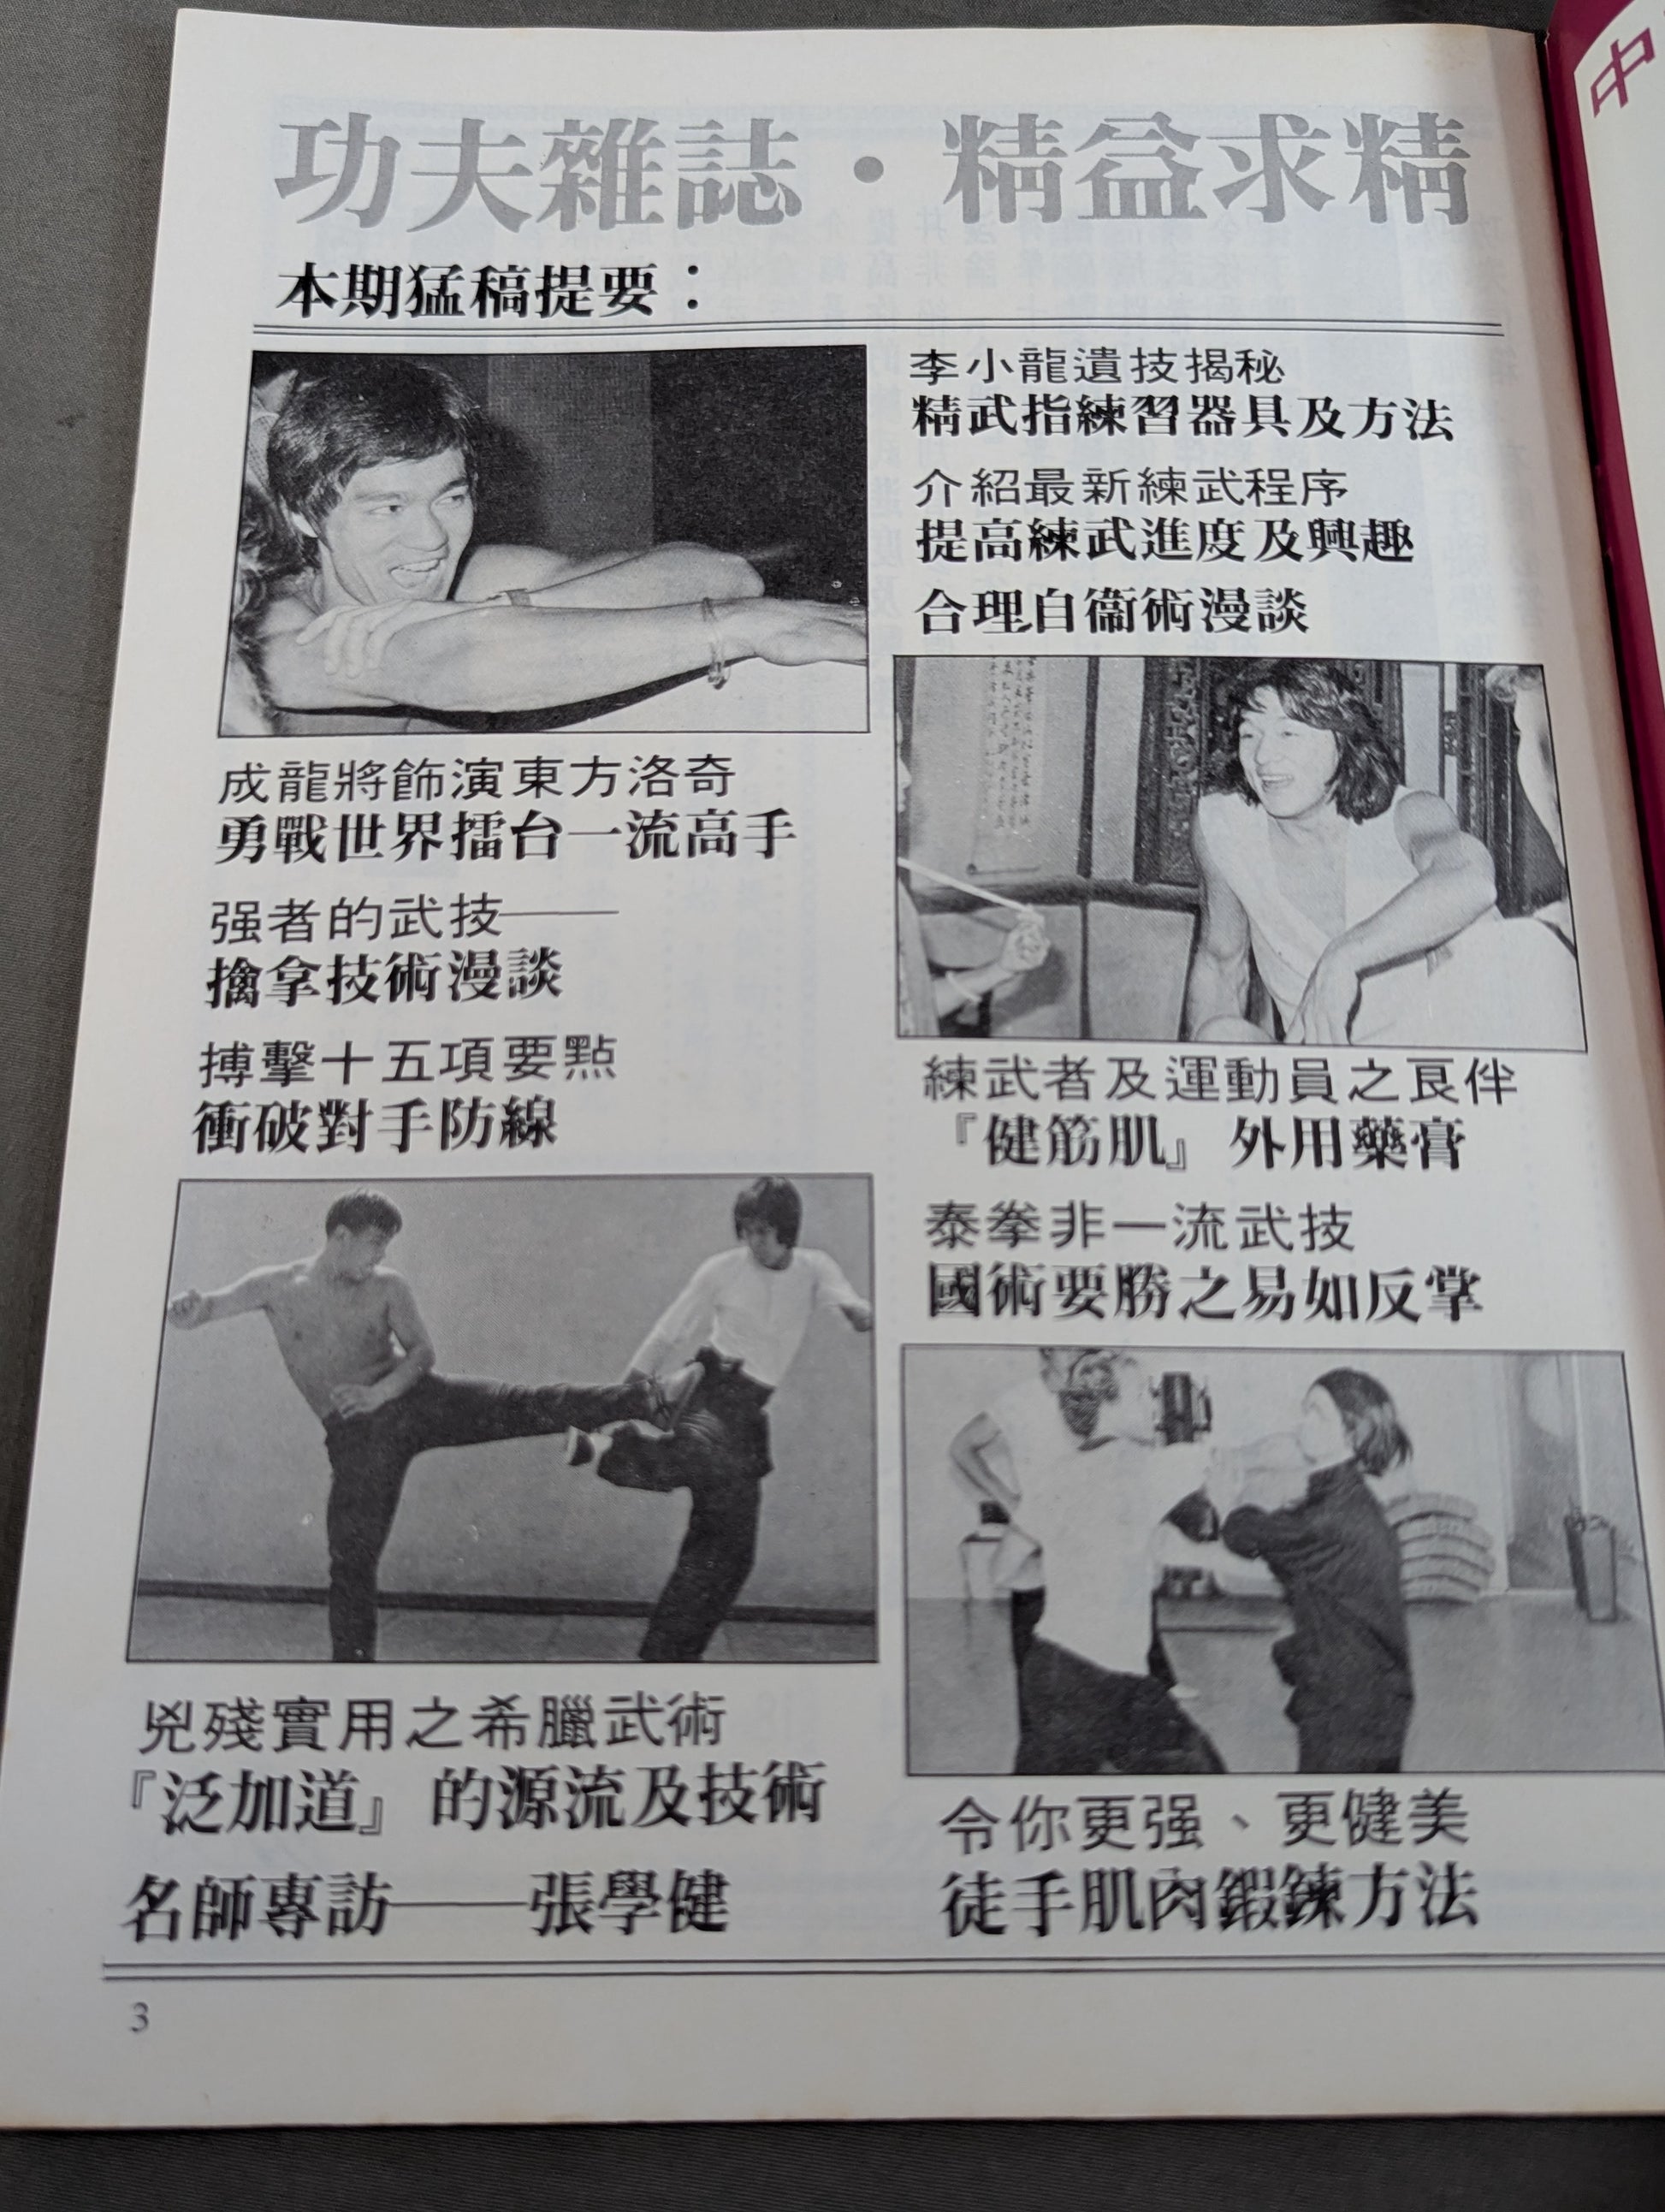 功夫雜誌・精益求精
本期猛稿提要：
李小龍遺技揭秘
精武指練習器具及方法
介紹最新練武程序
提高練武進度及興趣
合理自衞術漫談
成龍將飾演東方洛奇
勇戰世界擂台一流高手
强者的武技——
擒拿技術漫談
搏擊十五項要點
衝破對手防線
練武者及運動員之良伴
『健筋肌』外用藥膏
泰拳非一流武技
國術要勝之易如反掌
兇殘實用之希臘武術
『泛加道』的源流及技術
名師專訪——張學健
令你更强、更健美
徒手肌肉鍛鍊方法
3
中